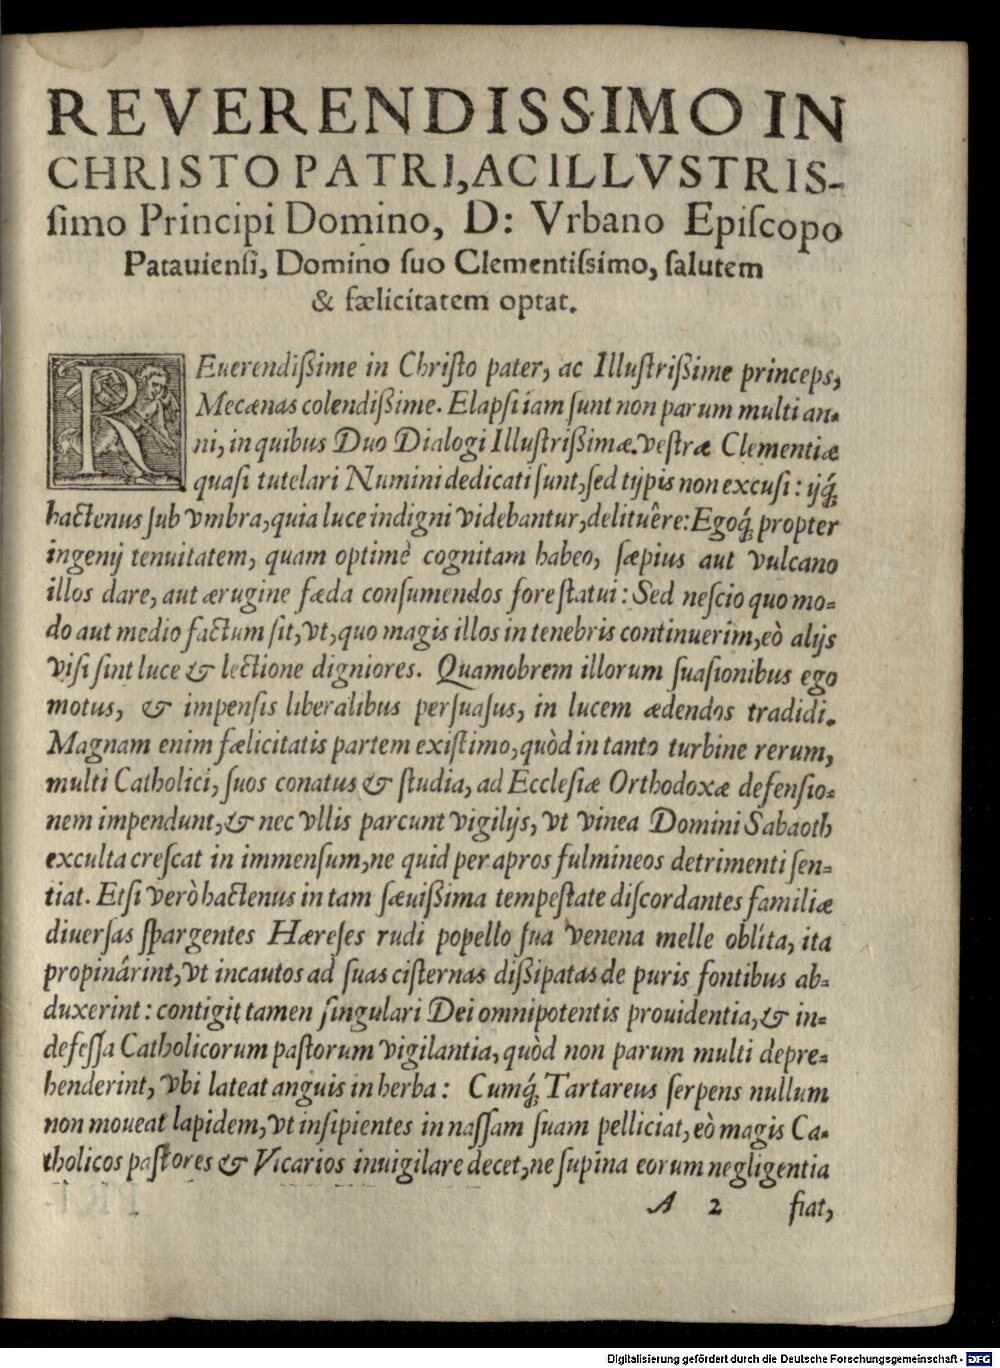 REVERENDISSIMO IN
CHRISTO PATRI, AC ILLVSTRIS-
ſimo Principi Domino, D: Vrbano Epiſcopo
Patauienſi, Domino ſuo Clementiſsimo, ſalutem
& fælicitatem optat.
REuerendißime in Chriſto pater, ac Illuſtrißime princeps,
Mecænas colendißime. Elapſi iam ſunt non parum multi an-
ni, in quibus Duo Dialogi Illuſtrißimæ. veſtræ Clementiæ
quaſi tutelari Numini dedicati ſunt, ſed typis non excuſi: ijq́;
hactenus ſub vmbra, quia luce indigni videbantur, delituêre: Egoq́; propter
ingenij tenuitatem, quam optimè cognitam habeo, ſæpius aut vulcano
illos dare, aut ærugine fæda conſumendos fore ſtatui: Sed neſcio quo mo-
do aut medio factum ſit, vt, quo magis illos in tenebris continuerim, eò alijs
viſi ſint luce & lectione digniores. Quamobrem illorum ſuaſionibus ego
motus, & impenſis liberalibus perſuaſus, in lucem ædendos tradidi.
Magnam enim fælicitatis partem exiſtimo, quòd in tanto turbine rerum,
multi Catholici, ſuos conatus & ſtudia, ad Eccleſiæ Orthodoxæ defenſio-
nem impendunt, & nec vllis parcunt vigilijs, vt vinea Domini Sabaoth
exculta creſcat in immenſum, ne quid per apros fulmineos detrimenti ſen-
tiat. Etſi verò hactenus in tam ſæuißima tempeſtate diſcordantes familiæ
diuerſas ſpargentes Hæreſes rudi popello ſua venena melle oblita, ita
propinârint, vt incautos ad ſuas ciſternas dißipatas de puris fontibus ab-
duxerint: contigit tamen ſingulari Dei omnipotentis prouidentia, & in-
defeſſa Catholicorum paſtorum vigilantia, quòd non parum multi depre-
henderint, vbi lateat anguis in herba: Cumq́; Tartareus ſerpens nullum
non moueat lapidem, vt inſipientes in naſſam ſuam pelliciat, eò magis Ca-
tholicos paſtores & Vicarios inuigilare decet, ne ſupina eorum negligentia
A 2 fiat,
Digitalisierung gefördert durch die Deutsche Forschungsgemeinschaft - DFG